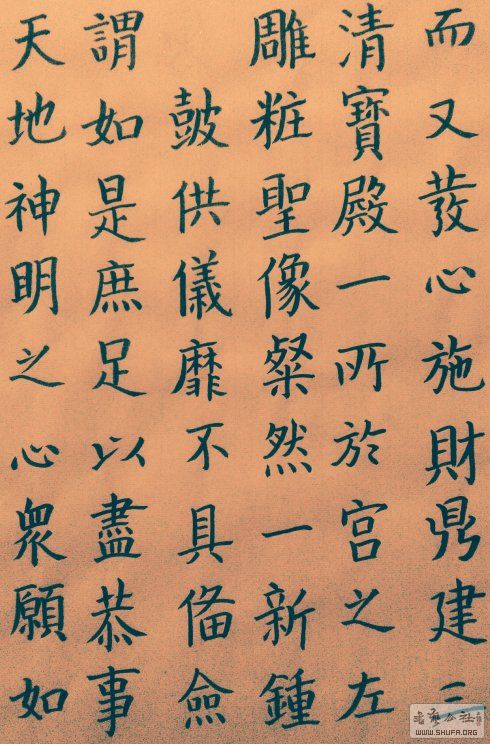 而又發心施財鼎建三
清寶殿一所於宮之左
雕粧聖像粲然一新鍾
鼓供儀靡不具備僉
謂如是庶足以盡恭事
天地神明之心衆願如
WWW.SHUFA.ORG